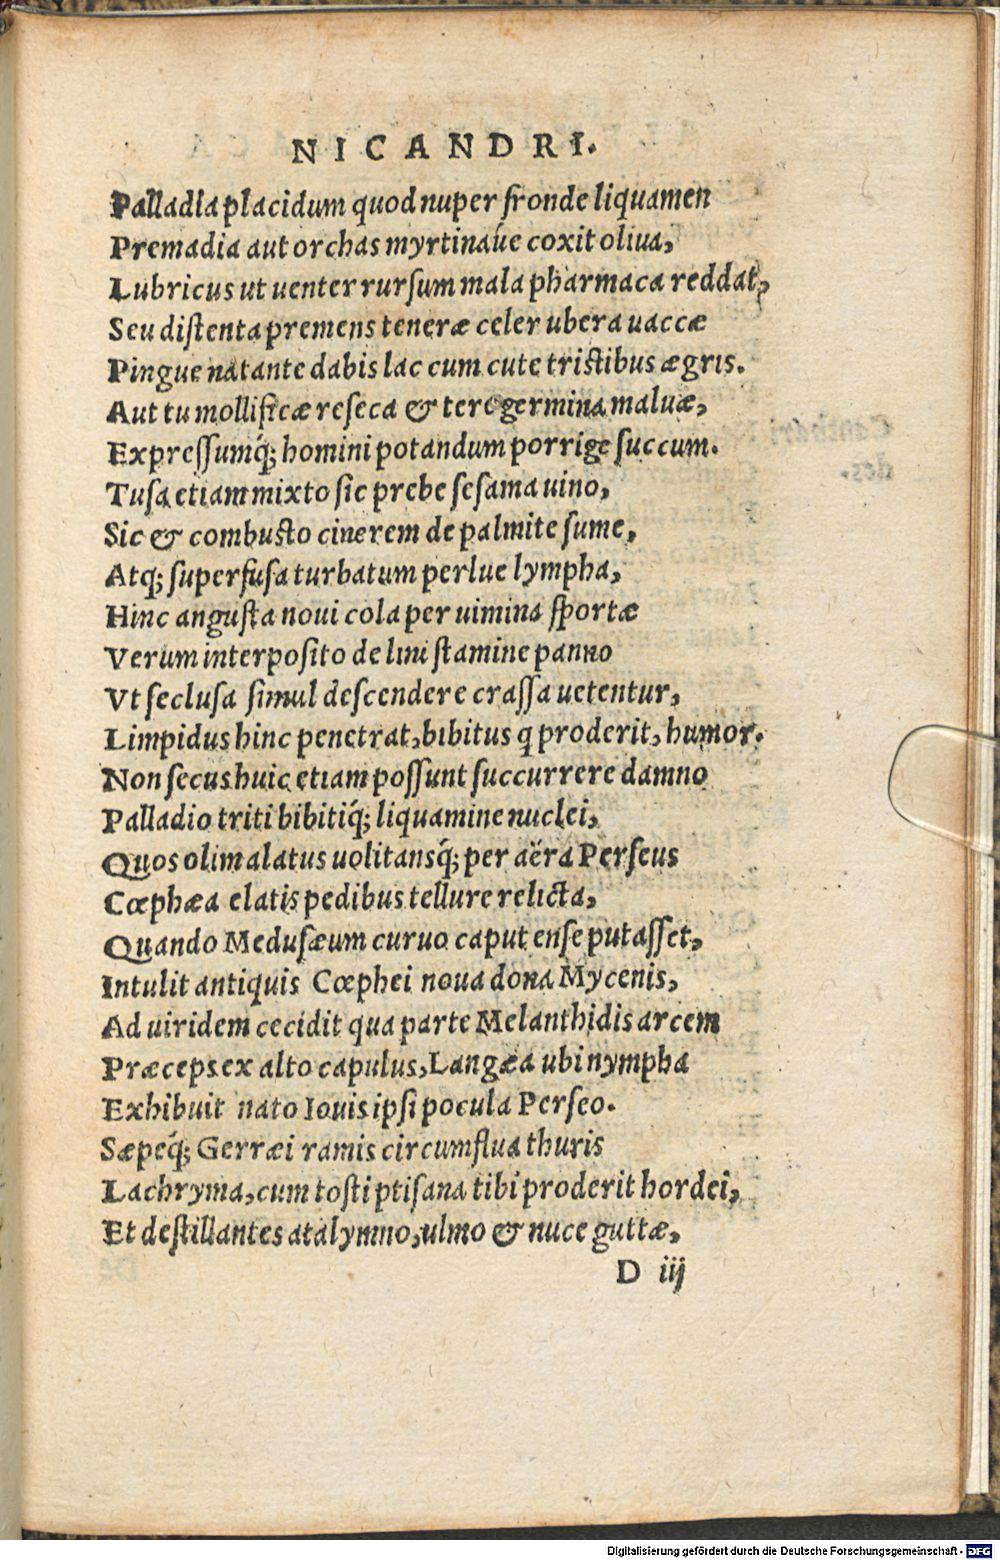 NICANDRI.
Palladia placidum quod nuper fronde liquamen
Premadia aut orchas myrtinaúe coxit oliua,
Lubricus ut uenter rursum mala pharmaca reddat,
Seu distenta premens teneræ celer ubera uaccæ
Pingue natante dabis lac cum cute tristibus ægris.
Aut tu mollificæ reseca & tere germina maluæ,
Expressumq́; homini potandum porrige succum.
Tusa etiam mixto sic prebe sesama uino,
Sic & combusto cinerem de palmite sume,
Atq; superfusa turbatum perlue lympha,
Hinc angusta noui cola per uimina sportæ
Verum interposito de lini stamine panno
Vt seclusa simul descendere crassa uetentur,
Limpidus hinc penetrat, bibitus q proderit, humor.
Non secus huic etiam possunt succurrere damno
Palladio triti bibitiq́; liquamine nuclei,
Quos olim alatus uolitansq́; per aëra Perseus
Cœphæa elatis pedibus tellure relicta,
Quando Medusæum curuo caput ense putasset,
Intulit antiquis Cœphei noua dona Mycenis,
Ad uiridem cecidit qua parte Melanthidis arcem
Præceps ex alto capulus, Langæa ubi nympha
Exhibuit nato Iouis ipsi pocula Perseo.
Sæpeq́; Gerræi ramis circumflua thuris
Lachryma, cum tosti ptisana tibi proderit hordei,
Et destillantes atalymno, ulmo & nuce guttæ,
D iij
Digitalisierung gefördert durch die Deutsche Forschungsgemeinschaft - DFG